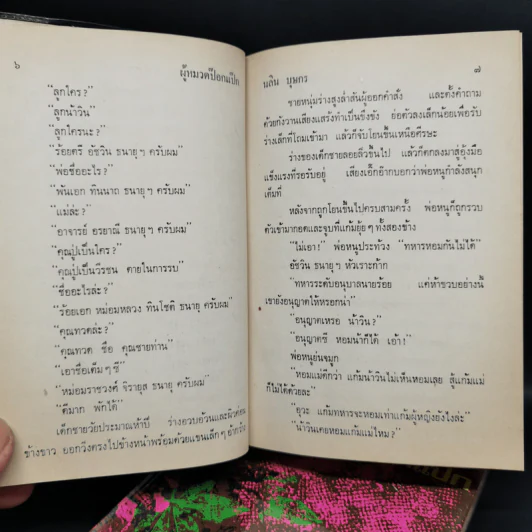 ๖ ผู้หมวดป๊อกแป๊ก
"ลูกใคร?"
"ลูกน้าวิน"
"ลูกใครนะ?"
"ร้อยตรี อัชวิน ธนายุๆ ครับผม"
"พ่อชื่ออะไร?"
"พันเอก ทินนาถ ธนายุๆ ครับผม"
"แม่ล่ะ?"
"อาจารย์ อรยาณี ธนายุๆ ครับผม"
"คุณปู่เป็นใคร?"
"คุณปู่เป็นวีรชน ตายในการรบ"
"ชื่ออะไรล่ะ?"
"ร้อยเอก หม่อมหลวง ทินโชติ ธนายุ ครับผม"
"คุณทวดล่ะ?"
"คุณทวด ชื่อ คุณชายท่าน"
"เอาชื่อเต็มๆ ซี"
"หม่อมราชวงศ์ จิรายุส ธนายุ ครับผม"
"ดีมาก พักได้"
เด็กชายวัยประมาณห้าปี ร่างอวบอ้วนและผิว
ข้างขาว ออกวิ่งตรงไปข้างหน้าพร้อมด้วยแขนเล็กๆ
นลิน บุษกร ๗
ชายหนุ่มร่างสูงล่ำสันผู้ออกคำสั่ง และตั้งคำถาม
ด้วยกังวานเสียงแสร้งทำเป็นขึงขัง ย่อตัวลงเล็กน้อยเพื่อรับ
ร่างเล็กที่โถมเข้ามา แล้วก็จับโยนขึ้นเหนือศีรษะ
ร่างของเด็กชายลอยลิ่วขึ้นไป แล้วก็ตกลงมาสู่อุ้งมือ
แข็งแรงที่รอรับอยู่ เสียงเอิ๊กอ๊ากบอกว่าพ่อหนูกำลังสนุก
เต็มที่
หลังจากถูกโยนขึ้นไปครบสามครั้ง พ่อหนูก็ถูกรวบ
ตัวเข้ามากอดและจูบที่แก้มยุ้ยๆ ทั้งสองข้าง
"ไม่เอา!" พ่อหนูประท้วง "ทหารหอมกันไม่ได้"
อัชวิน ธนายุๆ หัวเราะก๊าก
"ทหารระดับอนุบาลนายร้อย แค่ห้าขวบอย่างนี้
เขายังอนุญาตให้หรอกน่า"
"อนุญาตเหรอ น้าวิน?"
"อนุญาตซี หอมน้าก็ได้ เอ้า!"
พ่อหนูย่นจมูก
"หอมแม่ดีกว่า แก้มน้าวินไม่เห็นหอมเลย สู้แก้มแม่
ก็ไม่ได้ด้วยละ"
"อุวะ แก้มทหารจะหอมเท่าแก้มผู้หญิงยังไงล่ะ"
"น้าวินเคยหอมแก้มแม่ไหม?"